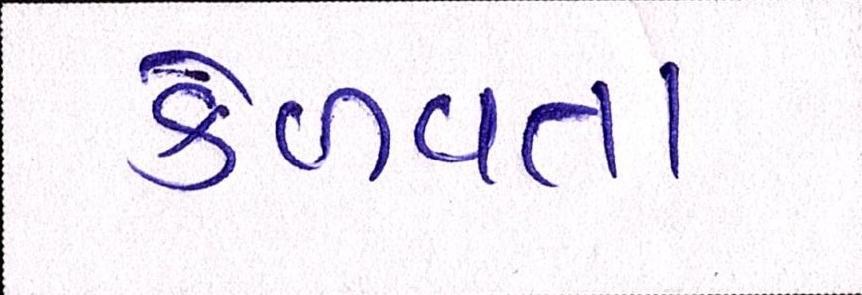 કેળવતા